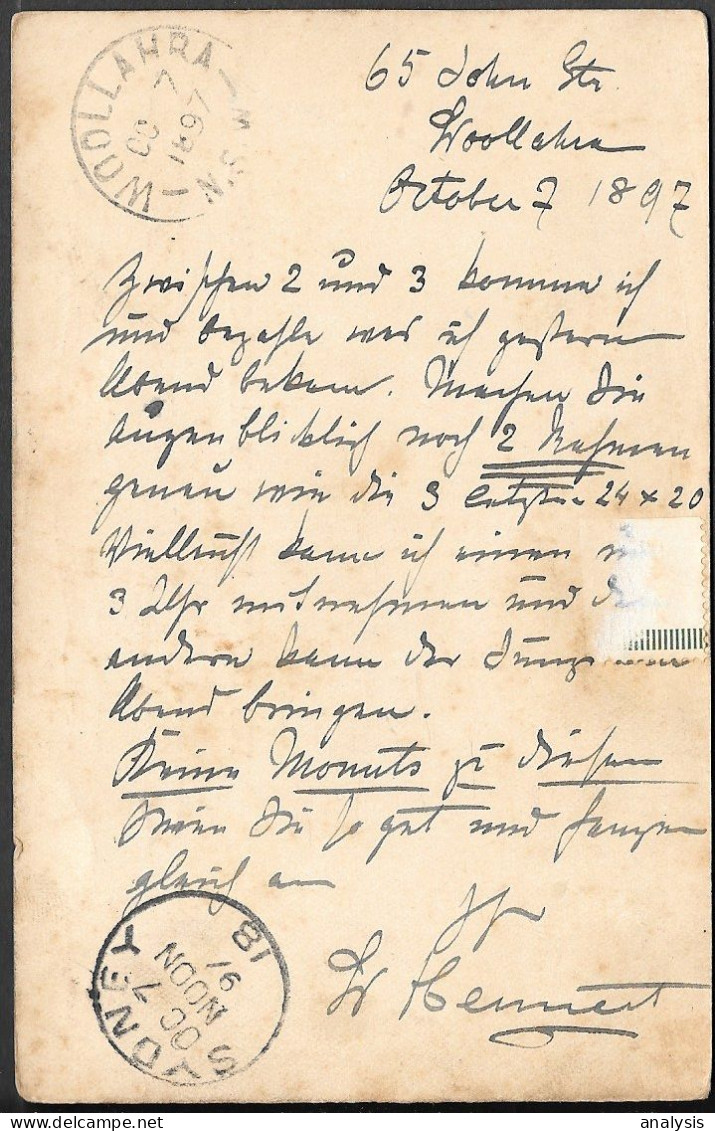 WOOLLAHRA N.S.W
OC 7
1897
65 John Str
Woollahra
October 7 1897
Zwischen 2 und 3 komme ich
und bezahle was ich gestern
Abend bekam. Machen Sie
augenblicklich noch 2 Rahmen
genau wie die 3 letzten 24 x 20
Vielleicht kann ich einen
3 Uhr mitnehmen und
andern kann der Junge
Abend bringen.
Keine Mounts zu diesen
Seien Sie so gut und fangen
gleich an
Ihr
Hennert
SYDNEY
OC 7
NOON
97
18
analysis